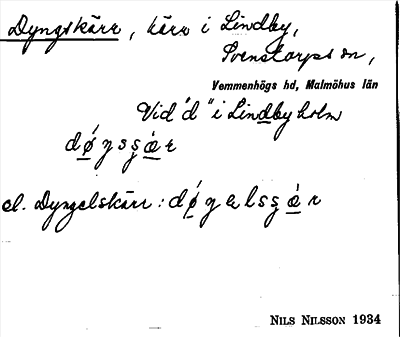 Dyngskärr, kärr i Lindby,
Svenstorps sn,
Vemmenhögs hd, Malmöhus län
Vid "d" i Lindbyholm
dǿŋsʂæ̀r
el. Dyngelskärr: dǿŋəlsʂæ̀r
NILS NILSSON 1934